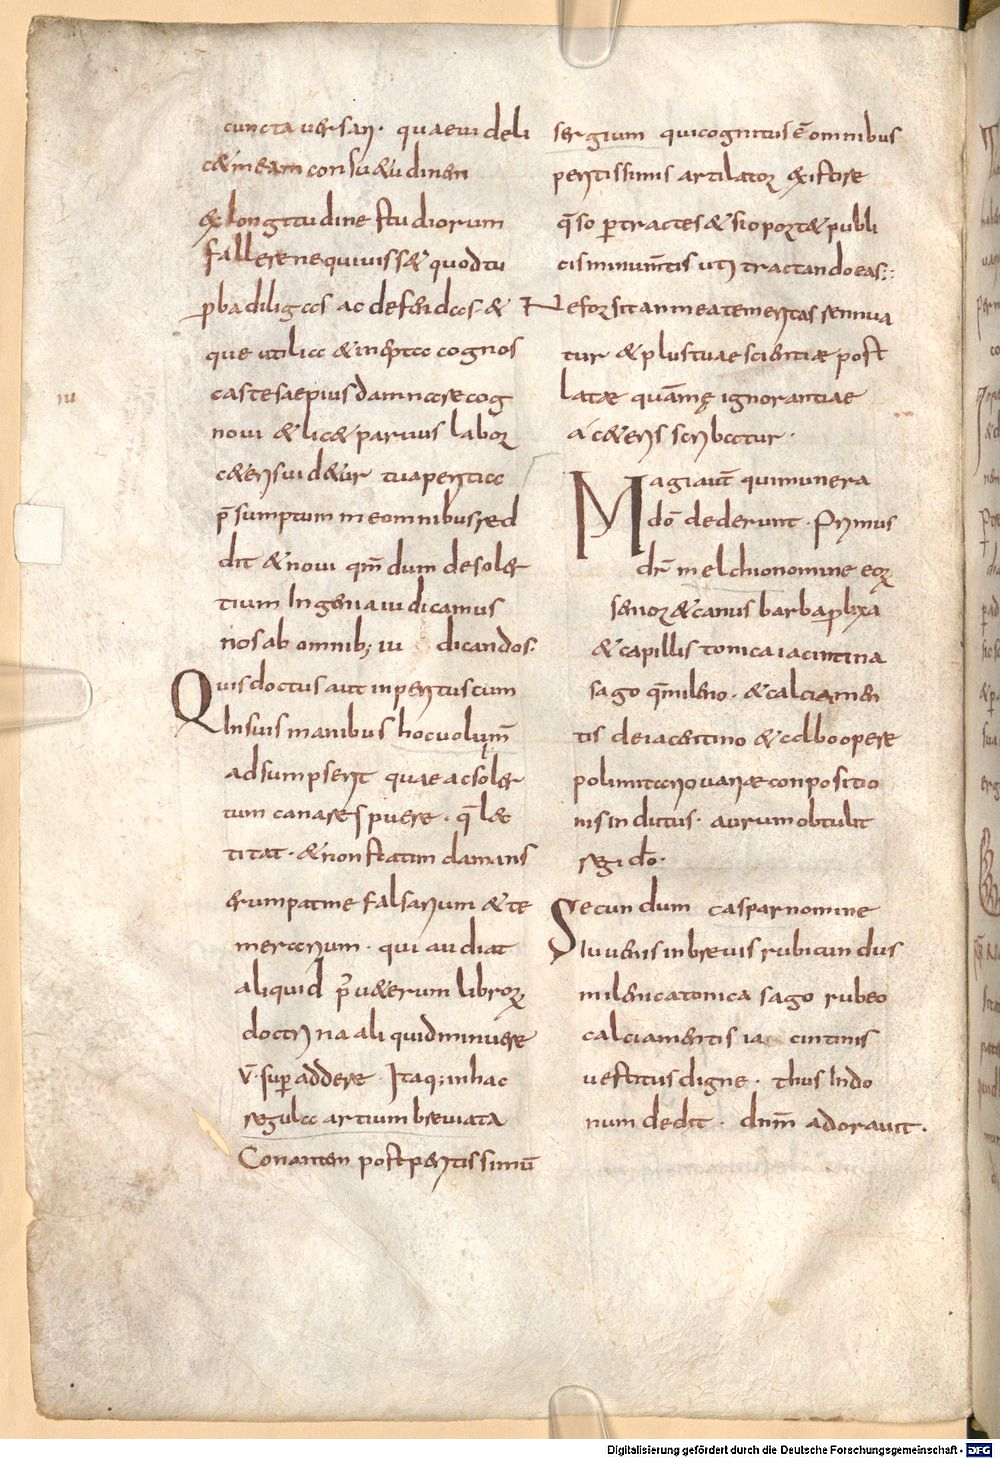 cuncta uersari · quaeui deli
c& meam consu&udinem
& longitudine studiorum
fallere nequiuiss& quod tu
ꝓba diligas ac defendas · &
que utilia & inepta cognos
cas te saepius damnare cog
noui & lic& paruus labor
c&eris uid&ur tua peritia
p̄sumptum me omnibus red
dit & noui qm̄ dum de soler
tium ingenia iudicamus
nos ab omnib; iu dicandos:
Quis doctus aut inperitus cum
In suis manibus hoc uolum̄
adsumpserit quae a soler
tum canare spuere · q̄ lae
titat · & non statim damans
erumpat me falsarium & te
merarium · qui audiat
aliquid p̄ u&erum librorum
doctrina aliquid minuere
v̄ · suꝑ addere · Itaq; in hac
regula artium breuiata
Conanten post peritissimū
iu
sergium qui cognitus ē omnibus
peritissimis artilator existere
q̄so ꝑtractes & si oport& publi
cis minum̄tis uti tractando eas:
Ne forsitan mea temeritas semiua
tur & plus tuae scientiae post
latae quām ę ignorantiae
a c&eris scribatur ·
Magi aut̄ qui munera
dō dederunt · Primus
dr̄ melchio nomine eorum
senior & canus barba ꝓlixa
& capillis tonica iacintina
sago q̄ mileno · & calciamen
tis de iacentino & albo opere
polimitario uariae conpositio
nis indutus · aurum obtulit
regi dō ·
Secundum caspar nomine
Iuuenis inbreuis rubicundus
milenica tonica sago rubeo
calciamentis ia cintinis
uestitus digne · thus Indo
num dedit · dnm̄ adorauit ·
Digitalisierung gefördert durch die Deutsche Forschungsgemeinschaft - DFG